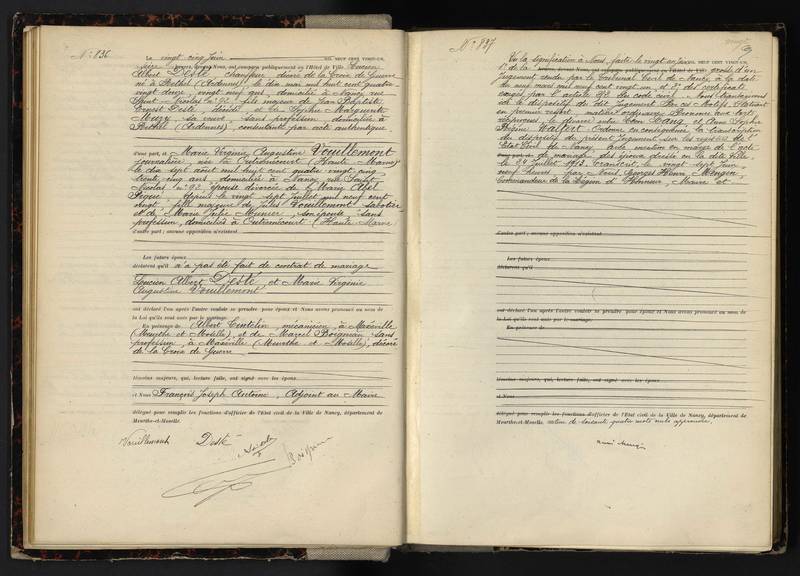 N° 836
Le vingt cinq juin mil neuf cent vingt-un,
heures, devant Nous, ont comparu publiquement en l'Hôtel de Ville Lucien
Albert Desté chauffeur, décoré de la Croix de Guerre
né à Rethel (Ardennes), le dix mai mil huit cent quatre
vingt douze, vingt neuf ans, domicilié à Nancy, rue
Saint-Nicolas n° 92, fils majeur de Jean Baptiste
Ernest Desté, décédé, et de Sophie Marguerite
sa veuve, sans profession, domiciliée à
Rethel (Ardennes), consentante par acte authentique
d'une part, et Marie Virginie Augustine Vouillemont
journalière, née à Outremécourt (Haute Marne)
le dix sept août mil huit cent quatre vingt cinq
trente cinq ans, domiciliée à Nancy, rue Saint-
Nicolas n° 92, épouse divorcée de Marie Abel
depuis le vingt sept juillet mil neuf cent
vingt, fille majeure de Jules Vouillemont, sabotier
et de Marie Julie Munier, son épouse, sans
profession, domiciliés à Outremécourt (Haute Marne)
d'autre part; aucune opposition n'existant
Les futurs époux
déclarent qu'il n'a pas été fait de contrat de mariage
Lucien Albert Desté, et Marie Virginie
Augustine Vouillemont
ont déclaré l'un après l'autre vouloir se prendre pour époux et Nous avons prononcé au nom de
la Loi qu'ils sont unis par le mariage.
En présence de Albert mécanicien, à Maxéville
(Meurthe et Moselle), et de Marcel Boigneau, sans
profession, à Maxéville (Meurthe et Moselle), décoré
de la Croix de Guerre
témoins majeurs, qui, lecture faite, ont signé avec les époux
et Nous François Joseph Antoine, Adjoint au Maire
délégué pour remplir les fonctions d'officier de l'Etat civil de la Ville de Nancy, département de
Meurthe-et-Moselle.
Vouillemont Desté
N° 837
Vu la signification à Nous faite le vingt un juin mil neuf cent vingt-un,
1° de la heures, devant Nous, ont comparu publiquement en l'Hôtel de Ville grosse d'un
jugement rendu par le Tribunal Civil de Nancy, à la date
du neuf mars mil neuf cent vingt un, et 2° des certificats
exigés par l'article 252 du code civil. Nous transcrivons
ici le dispositif du dit jugement. Par ces Motifs, Statuant
en premier ressort, matière ordinaire. Prononce aux torts
réciproques le divorce entre Léon et Anne Sophie
Régine Ordonne en conséquence la transcription
du dispositif du présent jugement sur les registres de l'
Etat Civil de Nancy, avec mention en marge de l'acte
d'une part, et de mariage des époux dressé en la dite ville,
le 29 juillet 1913. Transcrit le vingt sept juin,
neuf heures, par Nous, Georges Henri Mengin,
Commandeur de la Légion d'Honneur, Maire et
d'autre part; aucune opposition n'existant
Les futurs époux
déclarent qu'il
ont déclaré l'un après l'autre vouloir se prendre pour époux et Nous avons prononcé au nom de
la Loi qu'ils sont unis par le mariage.
En présence de
témoins majeurs, qui, lecture faite, ont signé avec les époux
et Nous
délégué pour remplir les fonctions d'officier de l'Etat civil de la Ville de Nancy, département de
Meurthe-et-Moselle. soixante quatre mots nuls approuvés
Mengin